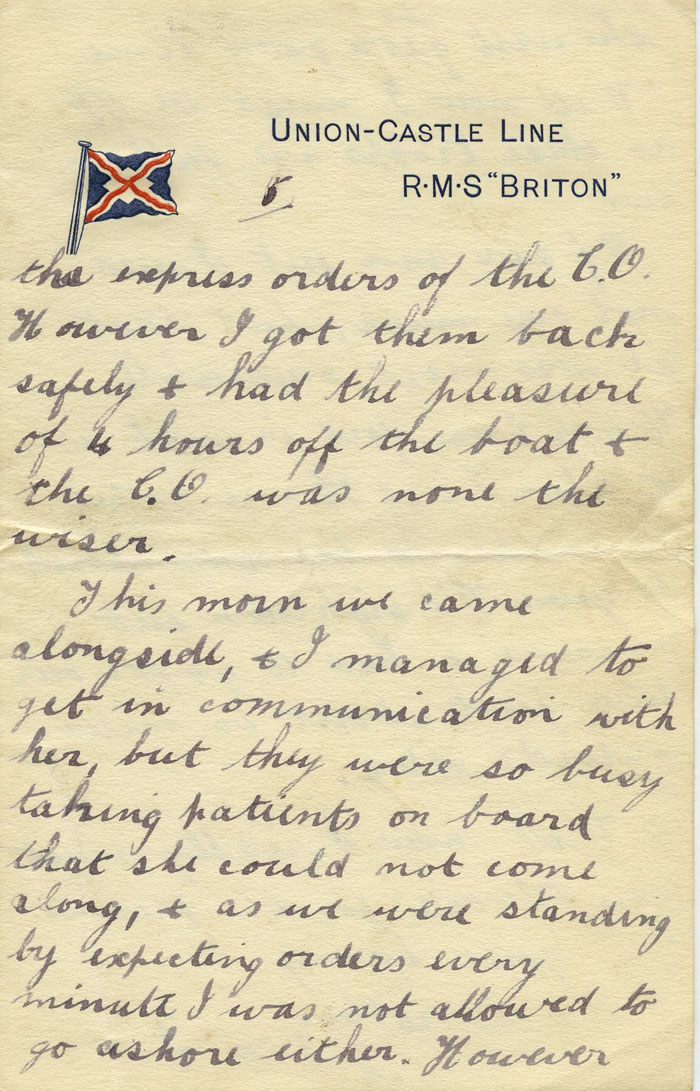 UNION-CASTLE LINE
5 R·M·S "BRITON"
the express orders of the C.O.
However I got them back
safely & had the pleasure
of 4 hours off the boat &
the C.O. was none the
wiser.
This morn we came
alongside, & I managed to
get in communication with
her, but they were so busy
taking patients on board
that she could not come
along, & as we were standing
by expecting orders every
minute I was not allowed to
go ashore either. However